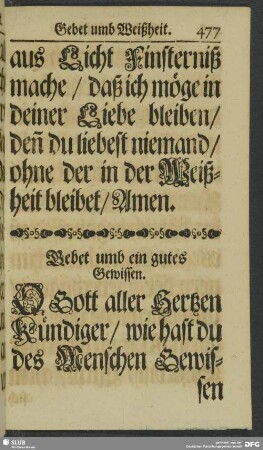 Gebet umb Weißheit. 477
aus Licht Finsterniß
mache / daß ich möge in
deiner Liebe bleiben /
deñ du liebest niemand /
ohne der in der Weiß-
heit bleibet / Amen.
Gebet umb ein gutes
Gewissen.
O Gott aller Hertzen
Kündiger / wie hast du
des Menschen Gewis-
sen
SLUB
DFG